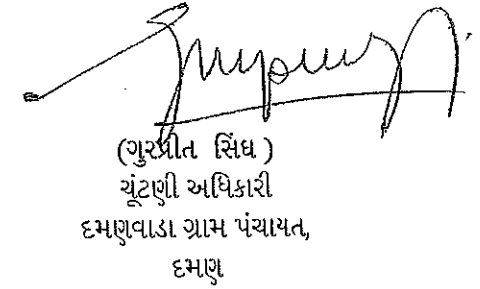 (ગુરપ્રીત સિંઘ )
ચૂંટણી અધિકારી
દમણવાડા ગ્રામ પંચાયત,
દમણ